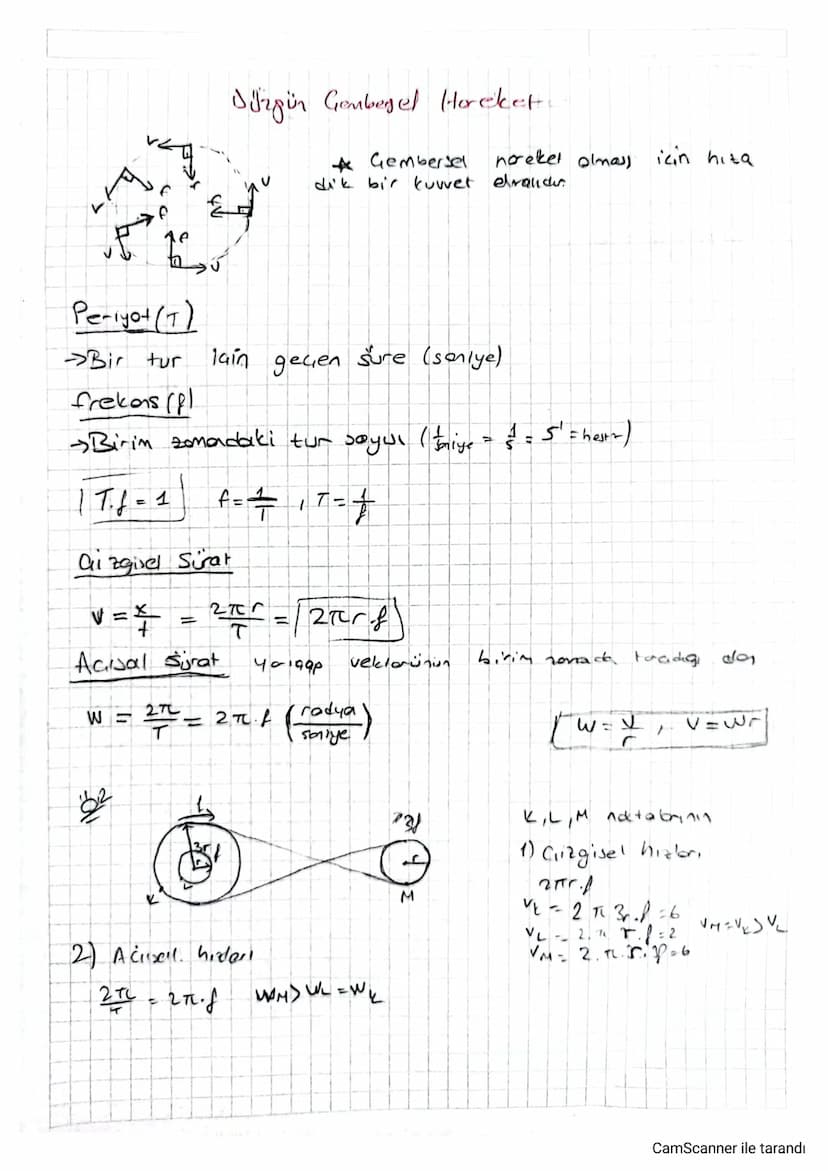 Düzgün Çembersel Hareket
V
F
V
F
V
F
V
F
V
F
* Çembersel hareket olması için hıza
dik bir kuvvet etkimelidir
Periyot (T)
→Bir tur için geçen süre (saniye)
frekans (f)
→Birim zamandaki tur sayısı (1/saniye = 1/s = s⁻¹ = hertz)
T.f = 1 f = 1/T , T = 1/f
Çizgisel Sürat
V = x/t = 2πr/T = 2πr f
Açısal Sürat yarıçap vektörünün birim zamanda taradığı açı
W = 2π/T = 2π.f (radya/saniye)
W = V/r , V = Wr
Ör
f
3r
r
f
3f
r
K
L
M
K, L, M noktalarının
1) Çizgisel hızları
2πr.f
VK = 2 π 3r.f = 6
VL = 2.π r.f = 2 VM = VK > VL
VM = 2.π.r. = 6
2) Açısal hızları
2π/T = 2π.f WM > WL = WK
CamScanner ile tarandı